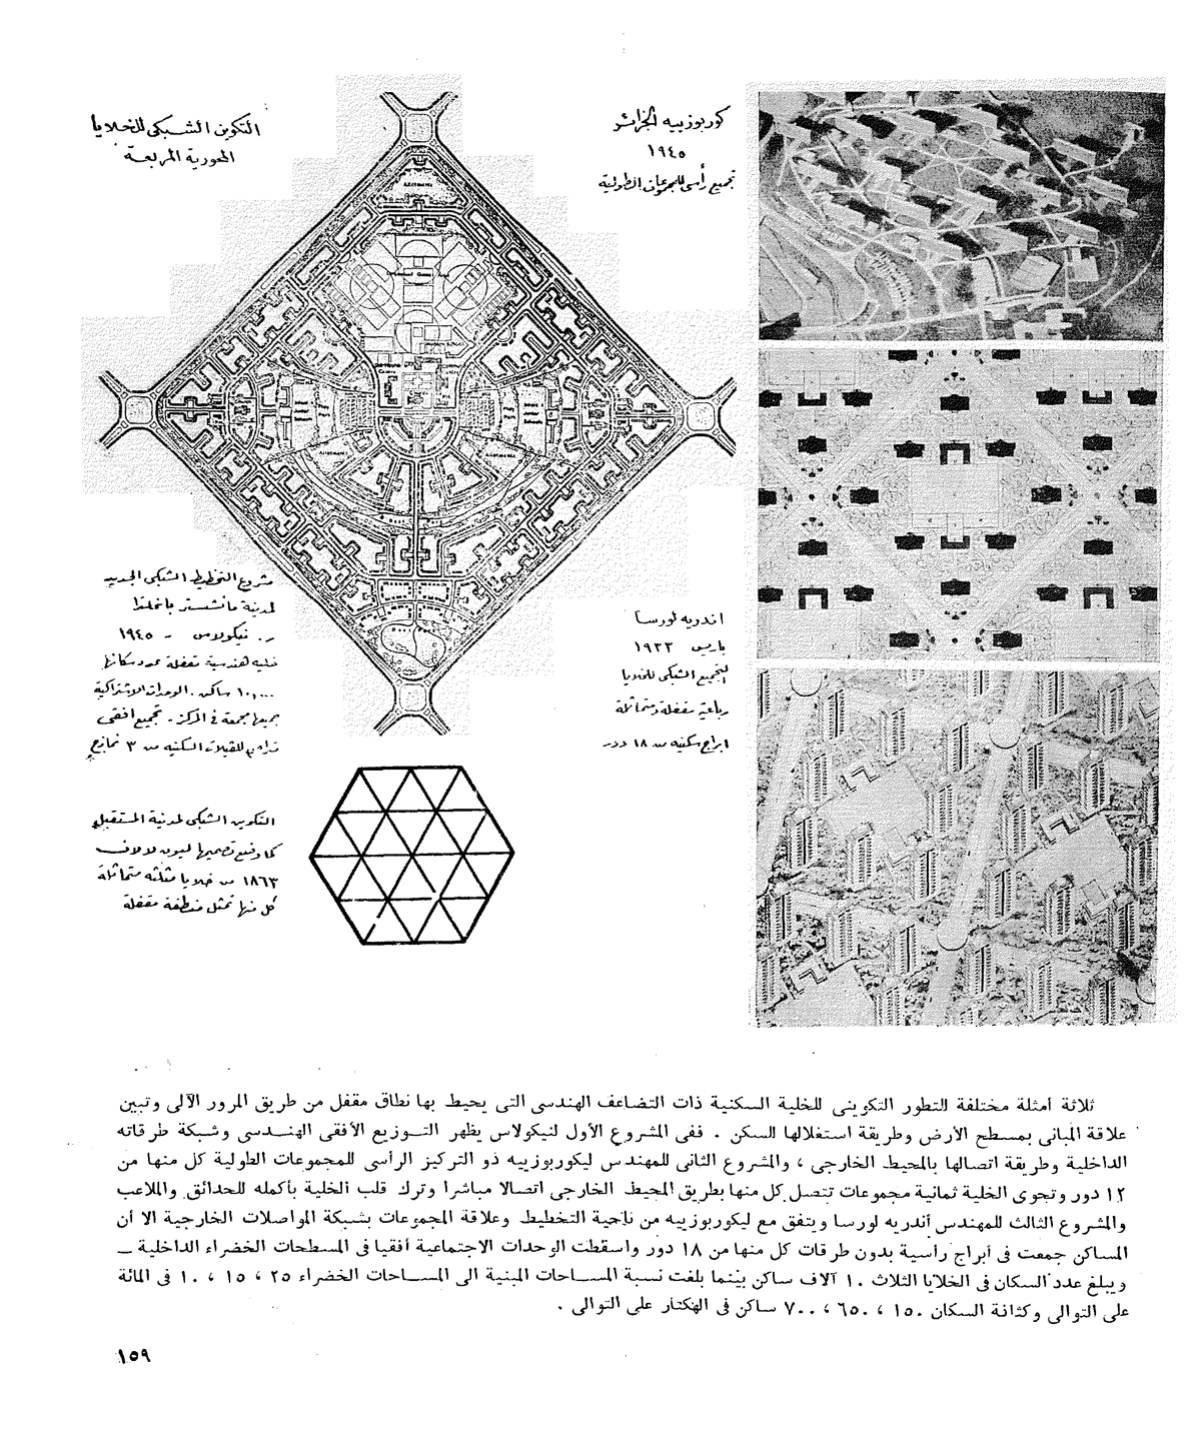 التكوين الشبكى للخلايا
المحورية المربعة
كوربوزييه الجزائر
١٩٤٥
تجميع رأسى للمجموعات الطولية
مشروع التخطيط الشبكى الجديد
لمدينة مانشستر بانجلترا
ر. نيكولاس - ١٩٤٥
خليه هندسية مقفلة عدد سكانها
١٠,٠٠٠ ساكن. الوحدات الاشتراكية
جميعها مجمعة فى المركز - تجميع افقى
للفيلات السكنيه من ٣ نماذج
اندريه لورسا
باريس ١٩٢٢
التجميع الشبكى للخلايا
رباعية مقفلة ومتماثلة
ابراج سكنيه من ١٨ دور
التكوين الشبكى لمدينة المستقبل
كما وضع تصميمها ليون لالاف
١٨٦٣ من خلايا مثلثه متماثلة
كل منها تمثل منطقة مقفلة
ثلاثة أمثلة مختلفة للتطور التكوينى للخلية السكنية ذات التضاعف الهندسى التى يحيط بها نطاق مقفل من طريق المرور الآلى وتبين
علاقة المبانى بمسطح الأرض وطريقة استغلالها للسكن . ففى المشروع الأول لنيكولاس يظهر التوزيع الأفقى الهندسى وشبكة طرقاته
الداخلية وطريقة اتصالها بالمحيط الخارجى ، والمشروع الثانى للمهندس ليكوربوزييه ذو التركيز الرأسى للمجموعات الطولية كل منها من
١٢ دور وتجوى الخلية ثمانية مجموعات تتصل كل منها بطريق المحيط الخارجى اتصالا مباشرا وترك قلب الخلية بأكمله للحدائق والملاعب
والمشروع الثالث للمهندس أندريه لورسا ويتفق مع ليكوربوزييه من ناحية التخطيط وعلاقة المجموعات بشبكة المواصلات الخارجية الا أن
المساكن جمعت فى أبراج رأسية بدون طرقات كل منها من ١٨ دور واسقطت الوحدات الاجتماعية أفقيا فى المسطحات الخضراء الداخلية _
ويبلغ عدد السكان فى الخلايا الثلاث ١٠ آلاف ساكن بينما بلغت نسبة المساحات المبنية الى المساحات الخضراء ٢٥ ، ١٥ ، ١٠ فى المائة
على التوالى وكثافة السكان ١٥٠ ، ٦٥٠ ، ٧٠٠ ساكن فى الهكتار على التوالى .
١٥٩